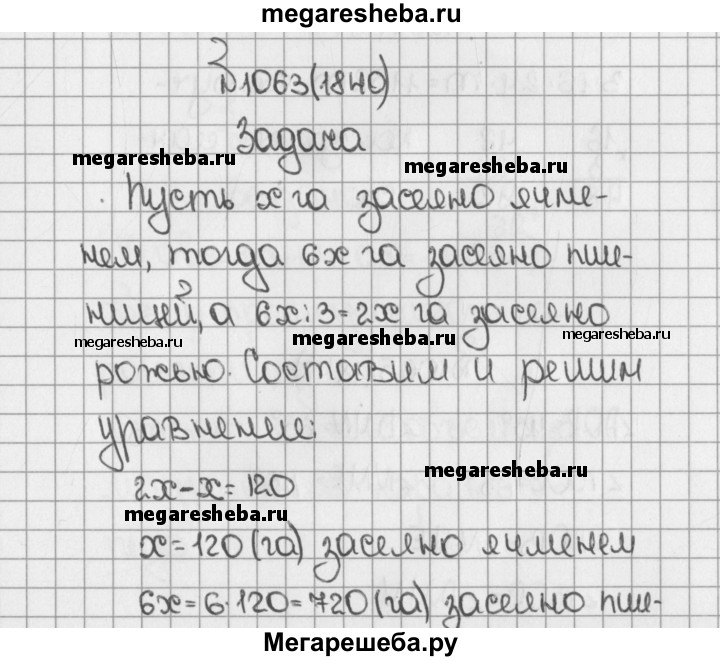 megaresheba.ru
№1063(1840)
Задача
megaresheba.ru megaresheba.ru
Пусть x га засеяно ячме-
нем, тогда 6x га засеяно пше-
ницей, а 6x:3=2x га засеяно
megaresheba.ru megaresheba.ru megaresheba.ru
рожью. Составим и решим
уравнение:
megaresheba.ru
2x-x=120
megaresheba.ru
x=120(га) засеяно ячменем
6x=6·120=720(га) засеяно пше-
Мегарешеба.ру